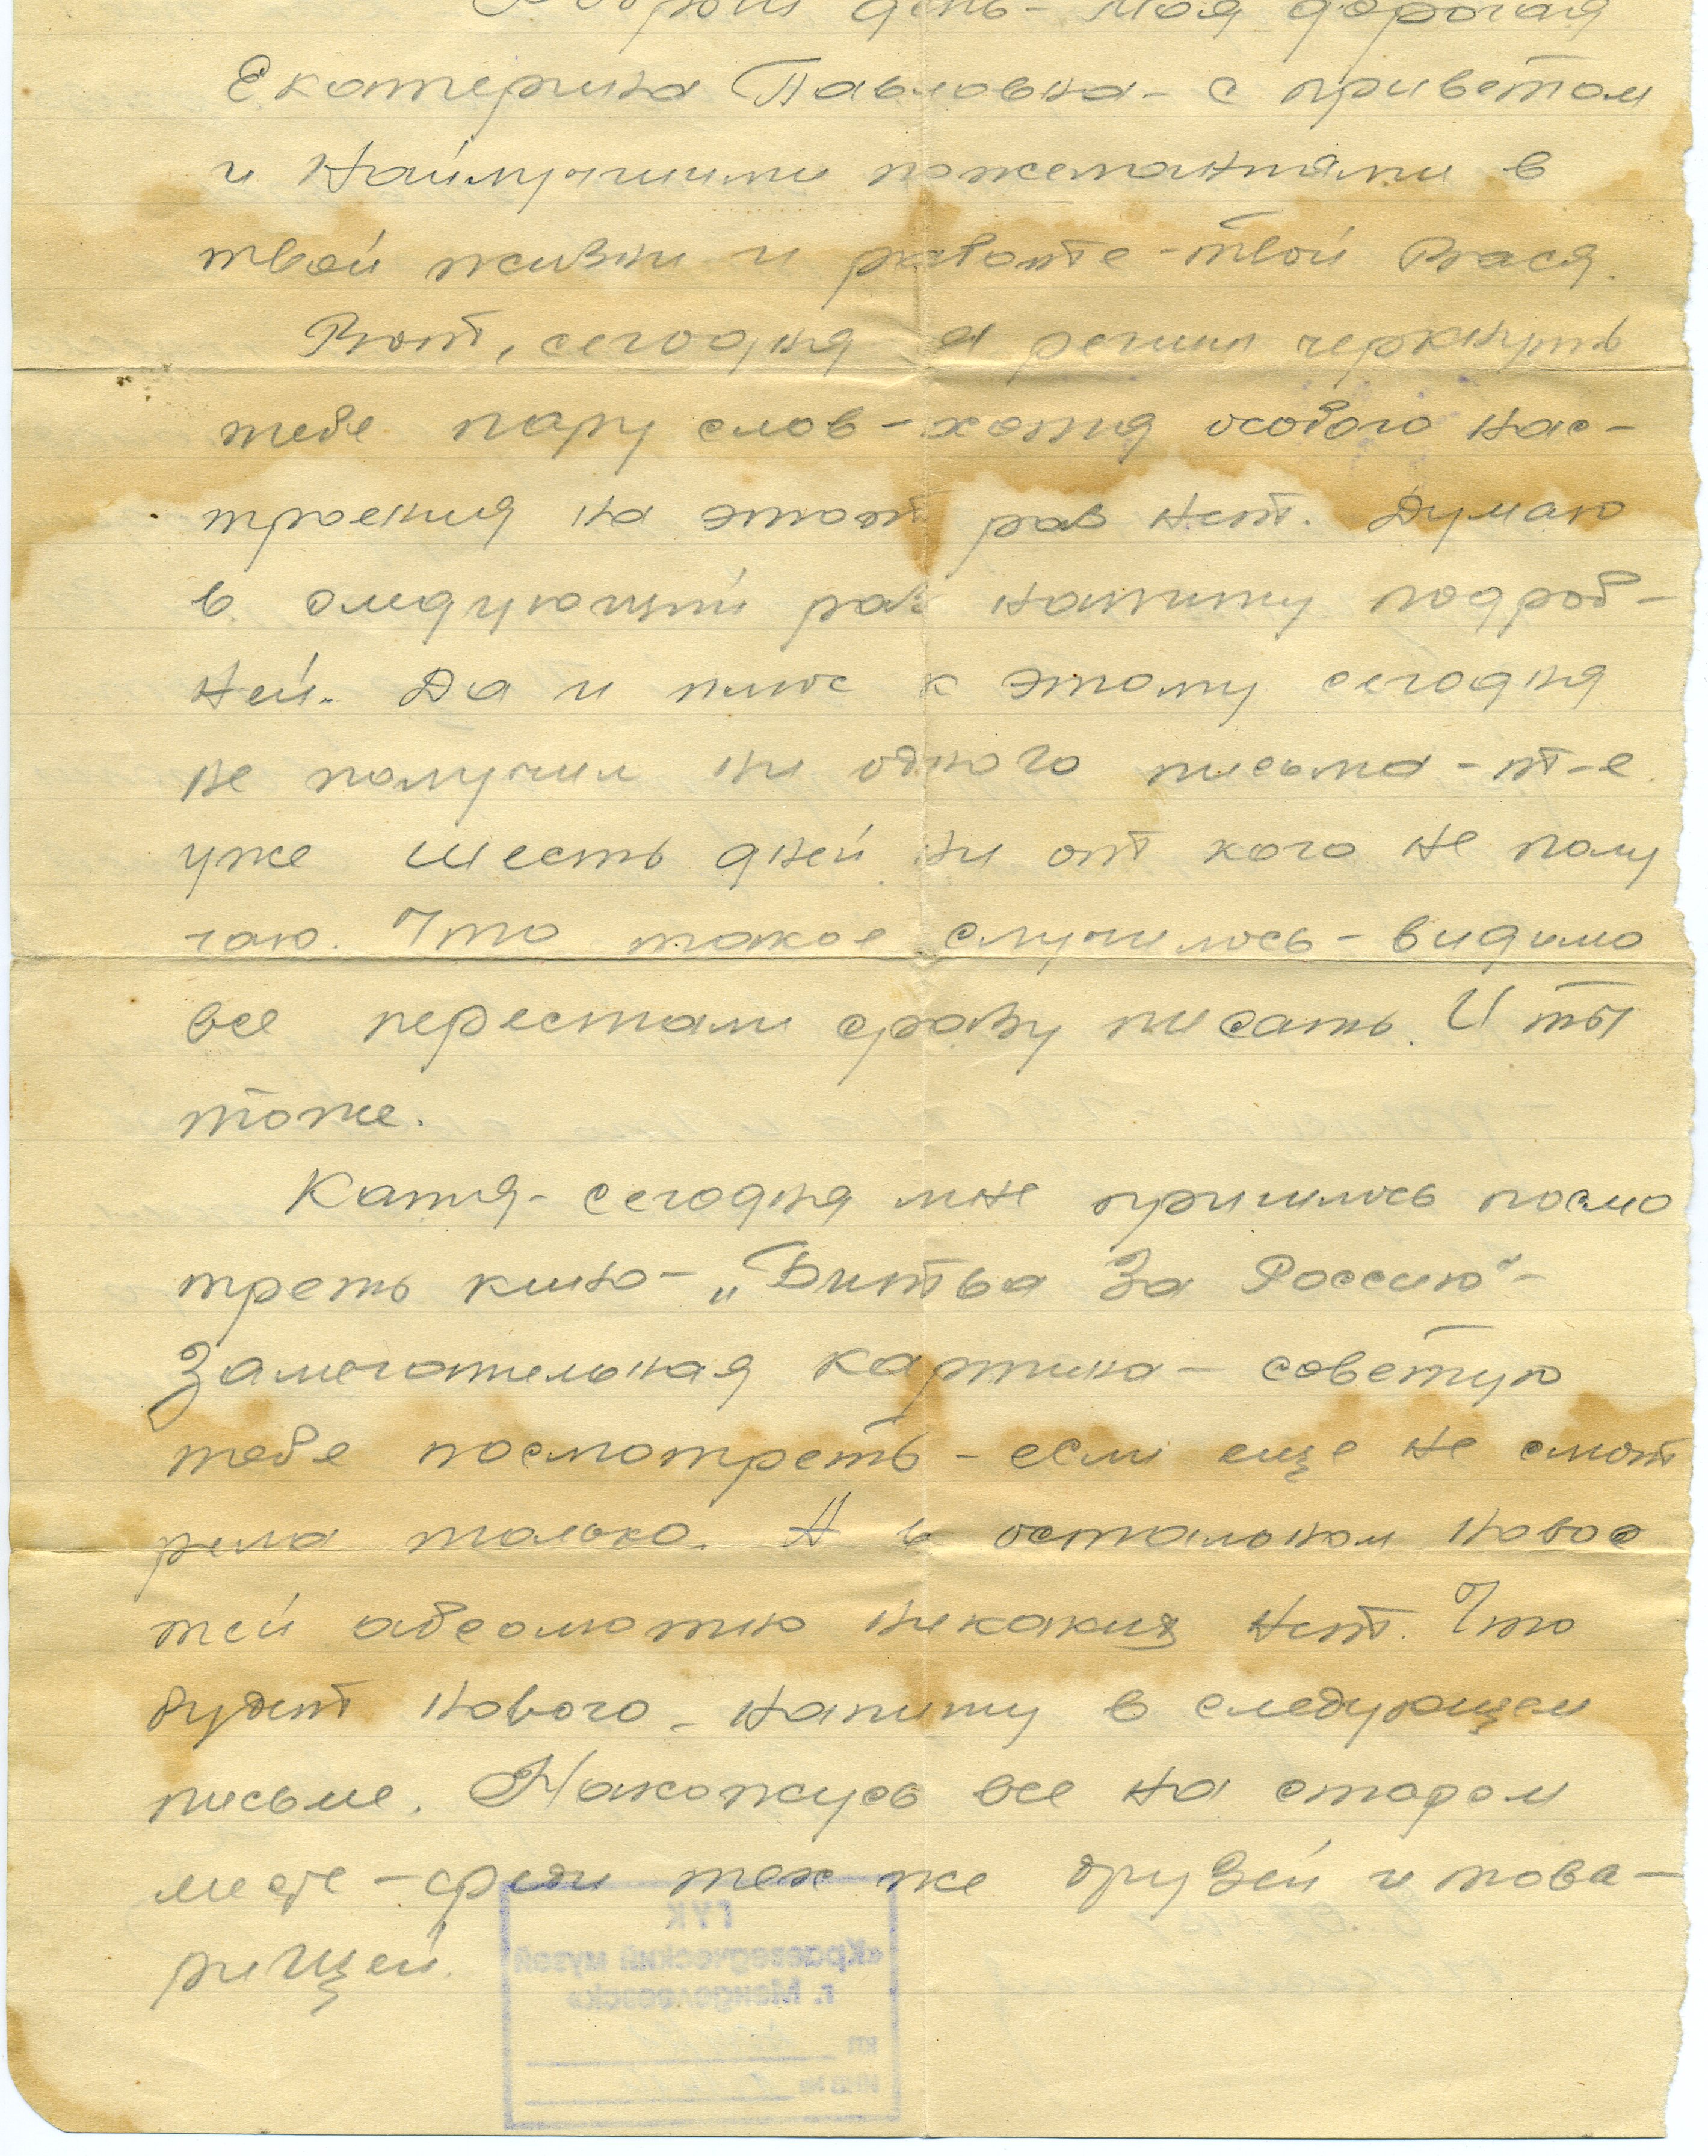 Добрый день - моя дорогая
Екатерина Павловна - с приветом
и наилучшими пожеланиями в
твоей жизни и работе - твой Вася.
Вот, сегодня я решил черкнуть
тебе пару слов - хотя особого нас-
троения на этот раз нет. Думаю
в следующий раз напишу подроб-
ней. Да и плюс к этому сегодня
не получил ни одного письма - т-е
уже шесть дней ни от кого не полу
чаю. Что такое случилось - видимо
все перестали сразу писать. И ты
тоже.
Катя - сегодня мне пришлось посмо
треть кино - „Битва За Россию" -
Замечательная картина - советую
тебе посмотреть - если еще не смот
рела только. А в остальном новос
тей абсолютно никаких нет. Что
будет нового - напишу в следующем
письме. Нахожусь все на старом
месте - среди тех же друзей и това-
рищей.
ГУК
«Краеведческий музей
г. Менделеевск»
КП
ИНВ №